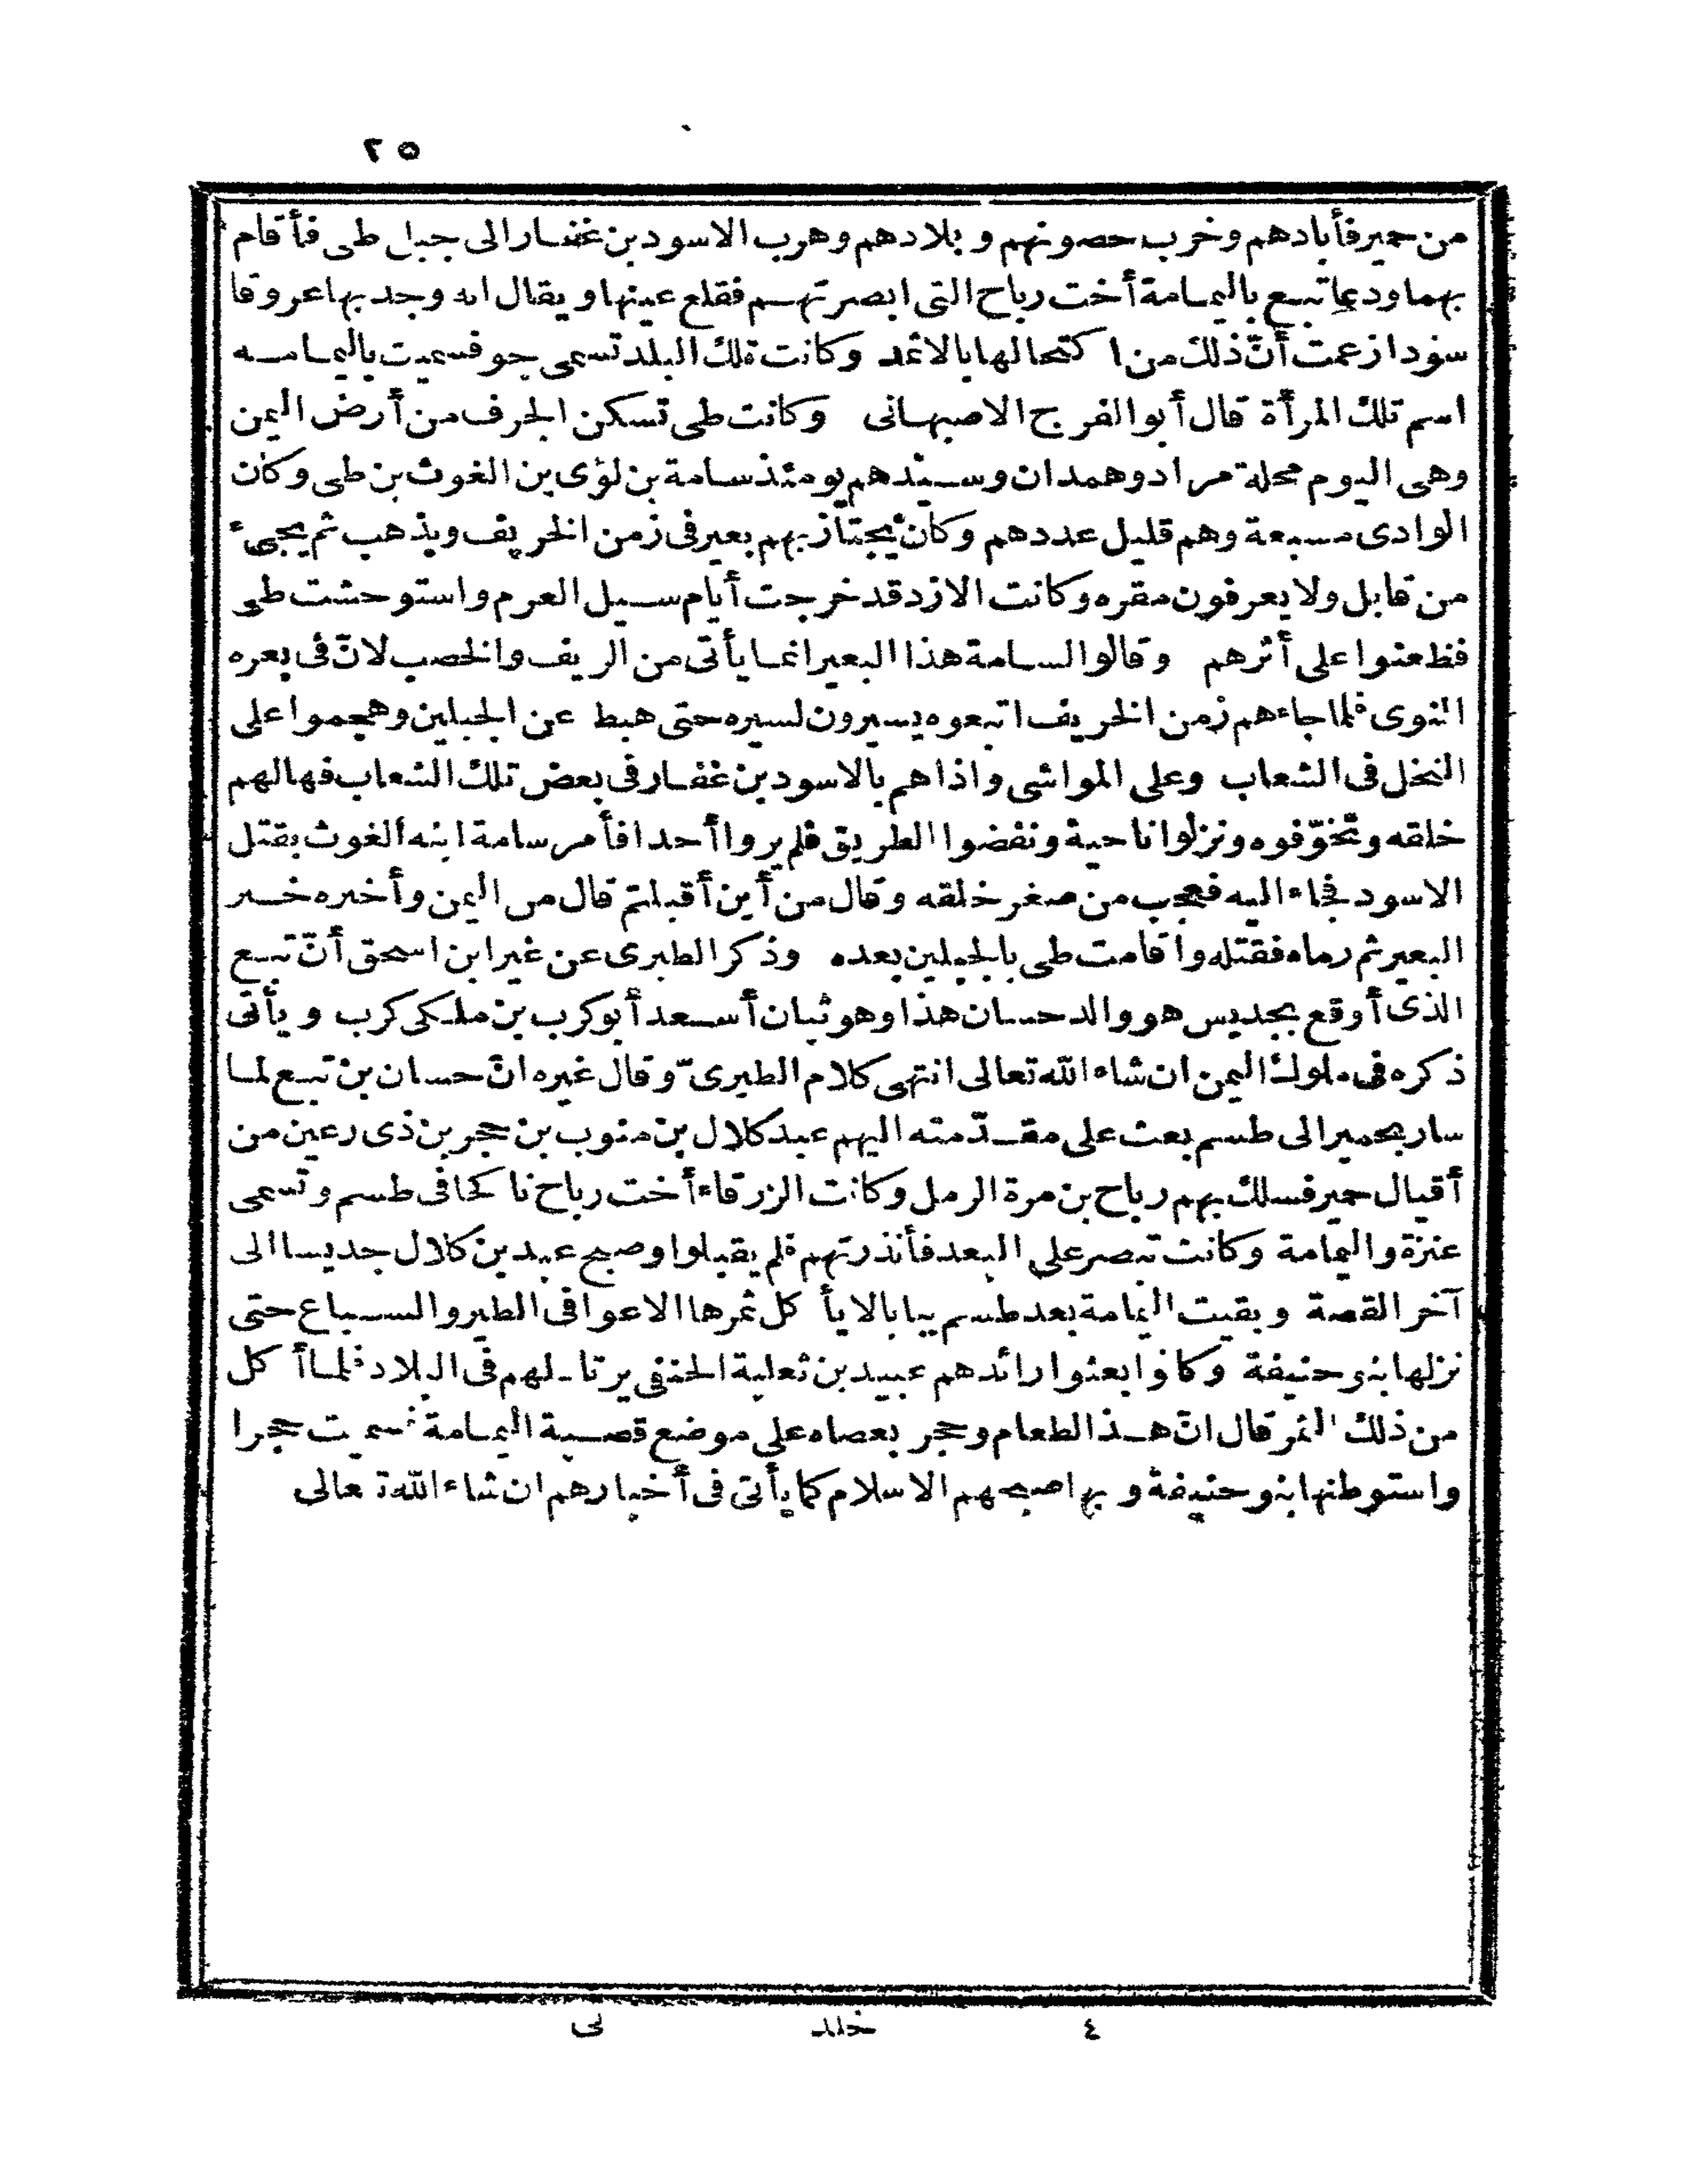 ٢٥
من حمير فأبادهم وخرب حصونهم وبلادهم وهرب الاسود بن غفار الى جبل طى فأقام
بهما ودعا تبع باليمامة أخت رباح التى ابصرتهم فقلع عينها ويقال انه وجد بها عروقا
سودا زعمت أنّ ذلك من اكتحالها بالاثمد وكانت تلك البلد تسمى جو فسميت باليمامه
اسم تلك المرأة قال أبو الفرج الاصبهانى وكانت طى تسكن الجرف من أرض اليمن
وهى اليوم محلة مراد وهمدان وسيدهم يومئذ سامة بن لؤى بن الغوث بن طى وكان
الوادى مسبعة وهم قليل عددهم وكان يجتاز بهم بعير فى زمن الخريف ويذهب ثم يجىء
من قابل ولا يعرفون مقره وكانت الازد قد خرجت أيام سيل العرم واستوحشت طى
فظعنوا على أثرهم وقالوا لسامة هذا البعير انما يأتى من الريف والخصب لانّ فى بعره
النوى فلما جاءهم زمن الخريف اتبعوه يسيرون لسيره حتى هبط عن الجبلين وهجموا على
النخل فى الشعاب وعلى المواشى واذا هم بالاسود بن غفار فى بعض تلك الشعاب فهالهم
خلقه وتخوّفوه ونزلوا ناحية ونفضوا الطريق فلم يروا أحدا فأمر سامة ابنه الغوث بقتل
الاسود فجاء اليه فعجب من صغر خلقه وقال من أين أقبلتم قال من اليمن وأخبره خبر
البعير ثم رماه فقتله واقامت طى بالجبلين بعده وذكر الطبرى عن غير ابن اسحق أنّ تبع
الذى أوقع بجديس هو والد حسان هذا وهو تبان أسعد أبو كرب بن ملكى كرب ويأتى
ذكره فى ملوك اليمن ان شاء الله تعالى انتهى كلام الطبرىّ وقال غيره انّ حسان بن تبع لما
سار بحمير الى طسم بعث على مقدّمته اليهم عبد كلال بن منوب بن حجر بن ذى رعين من
أقيال حمير فسلك بهم رباح بن مرة الرمل وكانت الزرقاء أخت رباح ناكحا فى طسم وتسمى
عنزة واليمامة وكانت تبصر على البعد فأنذرتهم فلم يقبلوا وصبح عبد بن كلال جديسا الى
آخر القصة وبقيت اليمامة بعد طسم يبابا لا يأكل ثمرها الا عوافى الطير والسباع حتى
نزلها بنو حنيفة وكانوا بعثوا رائدهم عبيد بن ثعلبة الحنفى يرتاد لهم فى البلاد فلما أكل
من ذلك الثمر قال انّ هذا لطعام وحجر بعصاه على موضع قصبة اليمامة فسميت حجرا
واستوطنها بنو حنيفة وبها صبحهم الاسلام كما يأتى فى أخبارهم ان شاء الله تعالى
٤ خلد نى